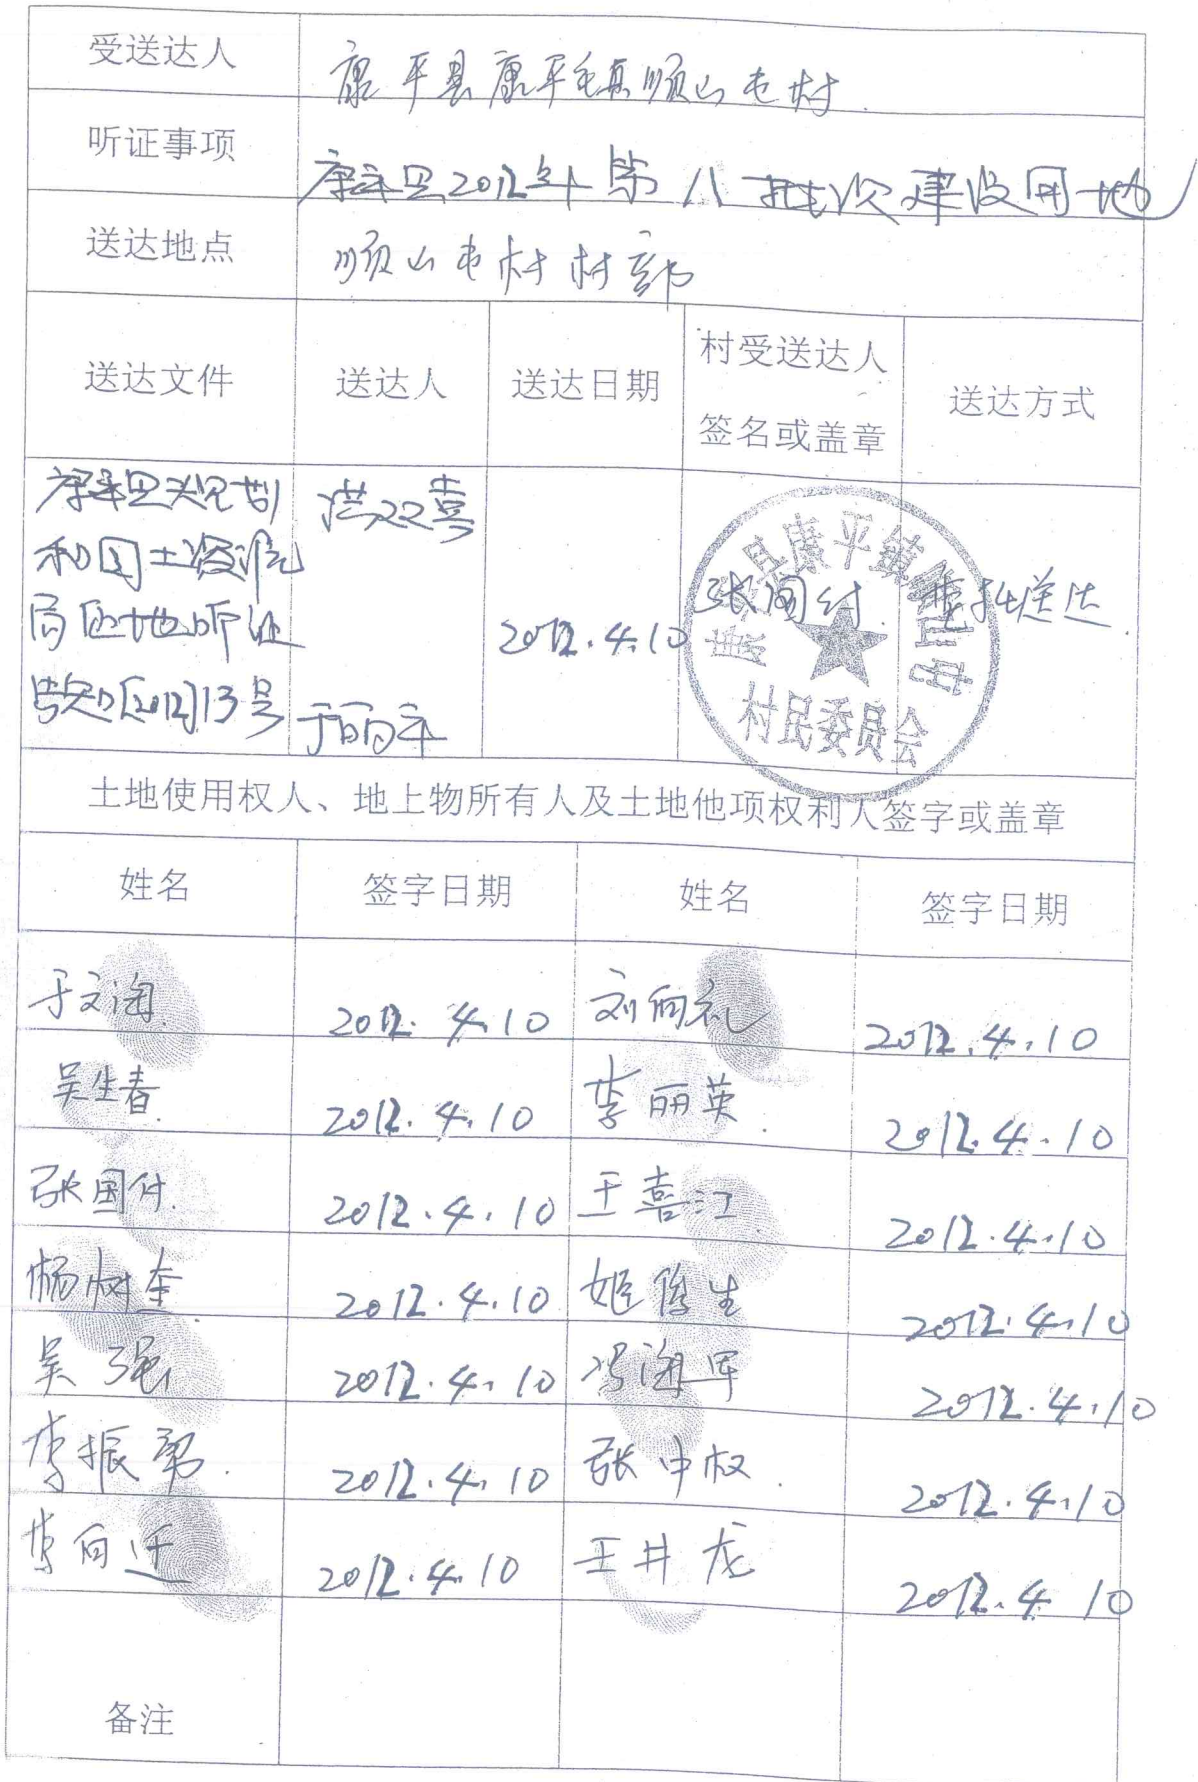 受送达人
康平县康平镇顺山屯村
听证事项
康平县2012年第八批次建设用地
送达地点
顺山屯村村部
送达文件
送达人
送达日期
村受送达人
签名或盖章
送达方式
康平县规划
和国土资源
局征地听证
告知[2012]13号
洪双喜
于丽平
2012.4.10
张国付
直接送达
康平县康平镇顺山屯
村民委员会
土地使用权人、地上物所有人及土地他项权利人签字或盖章
姓名
签字日期
姓名
签字日期
于文海
2012.4.10
刘向礼
2012.4.10
吴生春
2012.4.10
李丽英
2012.4.10
张国付
2012.4.10
王喜江
2012.4.10
杨树奎
2012.4.10
姬俊生
2012.4.10
吴强
2012.4.10
2012.4.10
李振勇
2012.4.10
张中权
2012.4.10
李向迁
2012.4.10
王井龙
2012.4.10
备注